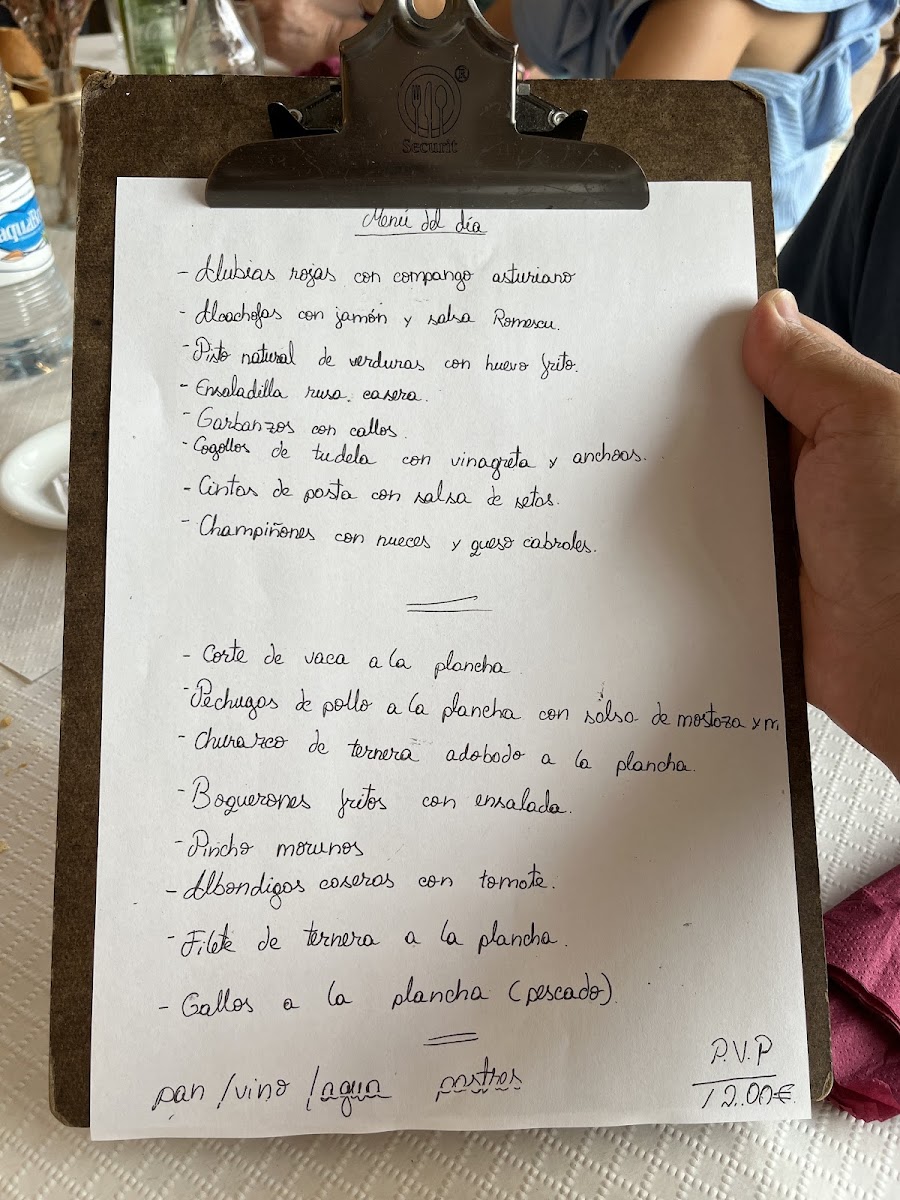 Securit ®
Menú del día
- Alubias rojas con compango asturiano
- Alcachofas con jamón y salsa Romescu.
- Pisto natural de verduras con huevo frito.
- Ensaladilla rusa casera.
- Garbanzos con callos.
- Cogollos de tudela con vinagreta y anchoas.
- Cintas de pasta con salsa de setas.
- Champiñones con nueces y queso cabrales.
- Corte de vaca a la plancha
- Pechugas de pollo a la plancha con salsa de mostaza y m
- Churrasco de ternera adobado a la plancha.
- Boquerones fritos con ensalada.
- Pincho morunos
- Albondigas caseras con tomate.
- Filete de ternera a la plancha.
- Gallos a la plancha (pescado).
pan / vino / agua postres
P.V.P
12.00€.